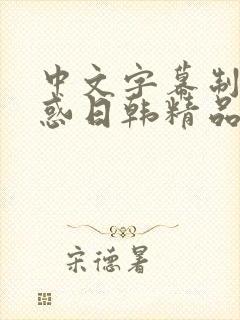 中文字幕制
惑日韩精品
宋德暑